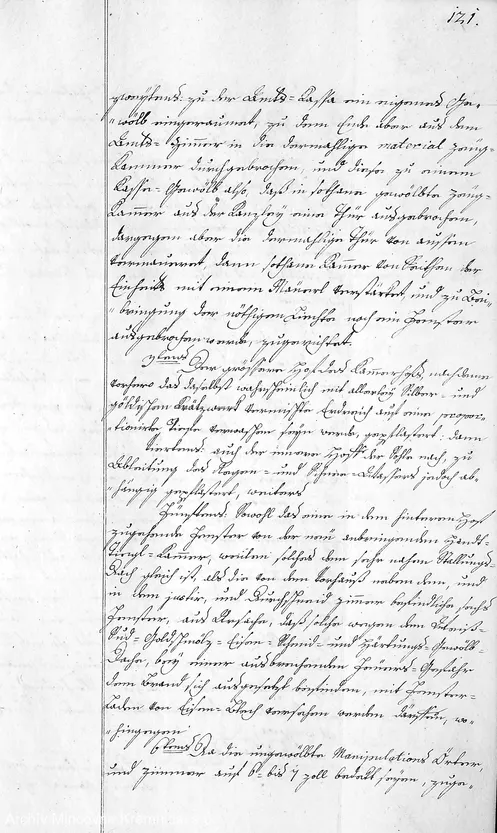 121.
zweytens: zu der Amts-Kassa ein eigenes Ge-
"wölb eingeraumet, zu dem Ende aber aus dem
Amts-Zimmer in die dermahlige material Zeug-
Kammer durchgebrochen, und diese zu einem
Kassa-Gewölb also, daß in sothane gewölbte Zeug-
Kammer aus der Kanzley eine Thür ausgebrochen,
dargegen aber die dermahlige Thür von aussen
vermauert, dann sothane Kammer von Seithen der
Einfarth mit einem Mäuerl verstärket, und zu Bei-
"bringung der nöthigen Liechte noch ein Fenster
ausgebrochen werde, zugerichtet.
3tens Der grössere Hof des Kammerhofs, nachdeme
vorhero das daselbst wahrscheinlich mit allerley Silber- und
göldischen Krätzwerk vermischte Erdreich auf eine propor-
"tionirte Tieffe verwaschen seyn werde, gepflastert: dann
viertens: auch der innere Hoff der Sohle nach, zu
Ableitung des Regen- und Schnee-Wassers jedoch ab-
"hängig gepflastert, weiters
Fünftens: Sowohl das eine in dem hinteren Hof
zugehende Fenster von der neu anbringenden
Kammer, weilen solches dem sehr nahen Stallungs-
Dach gleich ist, als die von dem Vorhauß neben dem, und
in dem justir, und Durchschneid Zimmer befindliche sechs
Fenster, aus Ursache, daß solche wegen dem Weiß-
Sud-Goldschmölz-Eisen-Schmid- und Härtungs-Gewölb-
Dache, bey einer ausbrechenden Feuers-Gefahr
dem Brand sich ausgesetzt befinden, mit Fenster-
Laden von Eisen-Blech versehen werden dürften, wo-
"hingegen
6tens Da die ungewölbte Manipulations Örter,
und Zimmer auf 6- bis 7 Zoll bedekt seyen, zuge-
Archiv Mincovne Kremnica